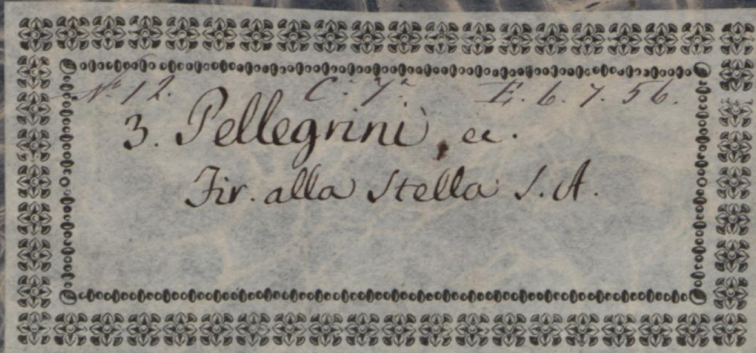 N. 12. C. 7. E. 6. 7. 56.
3. Pellegrini, ec.
Fir. alla Stella S. A.